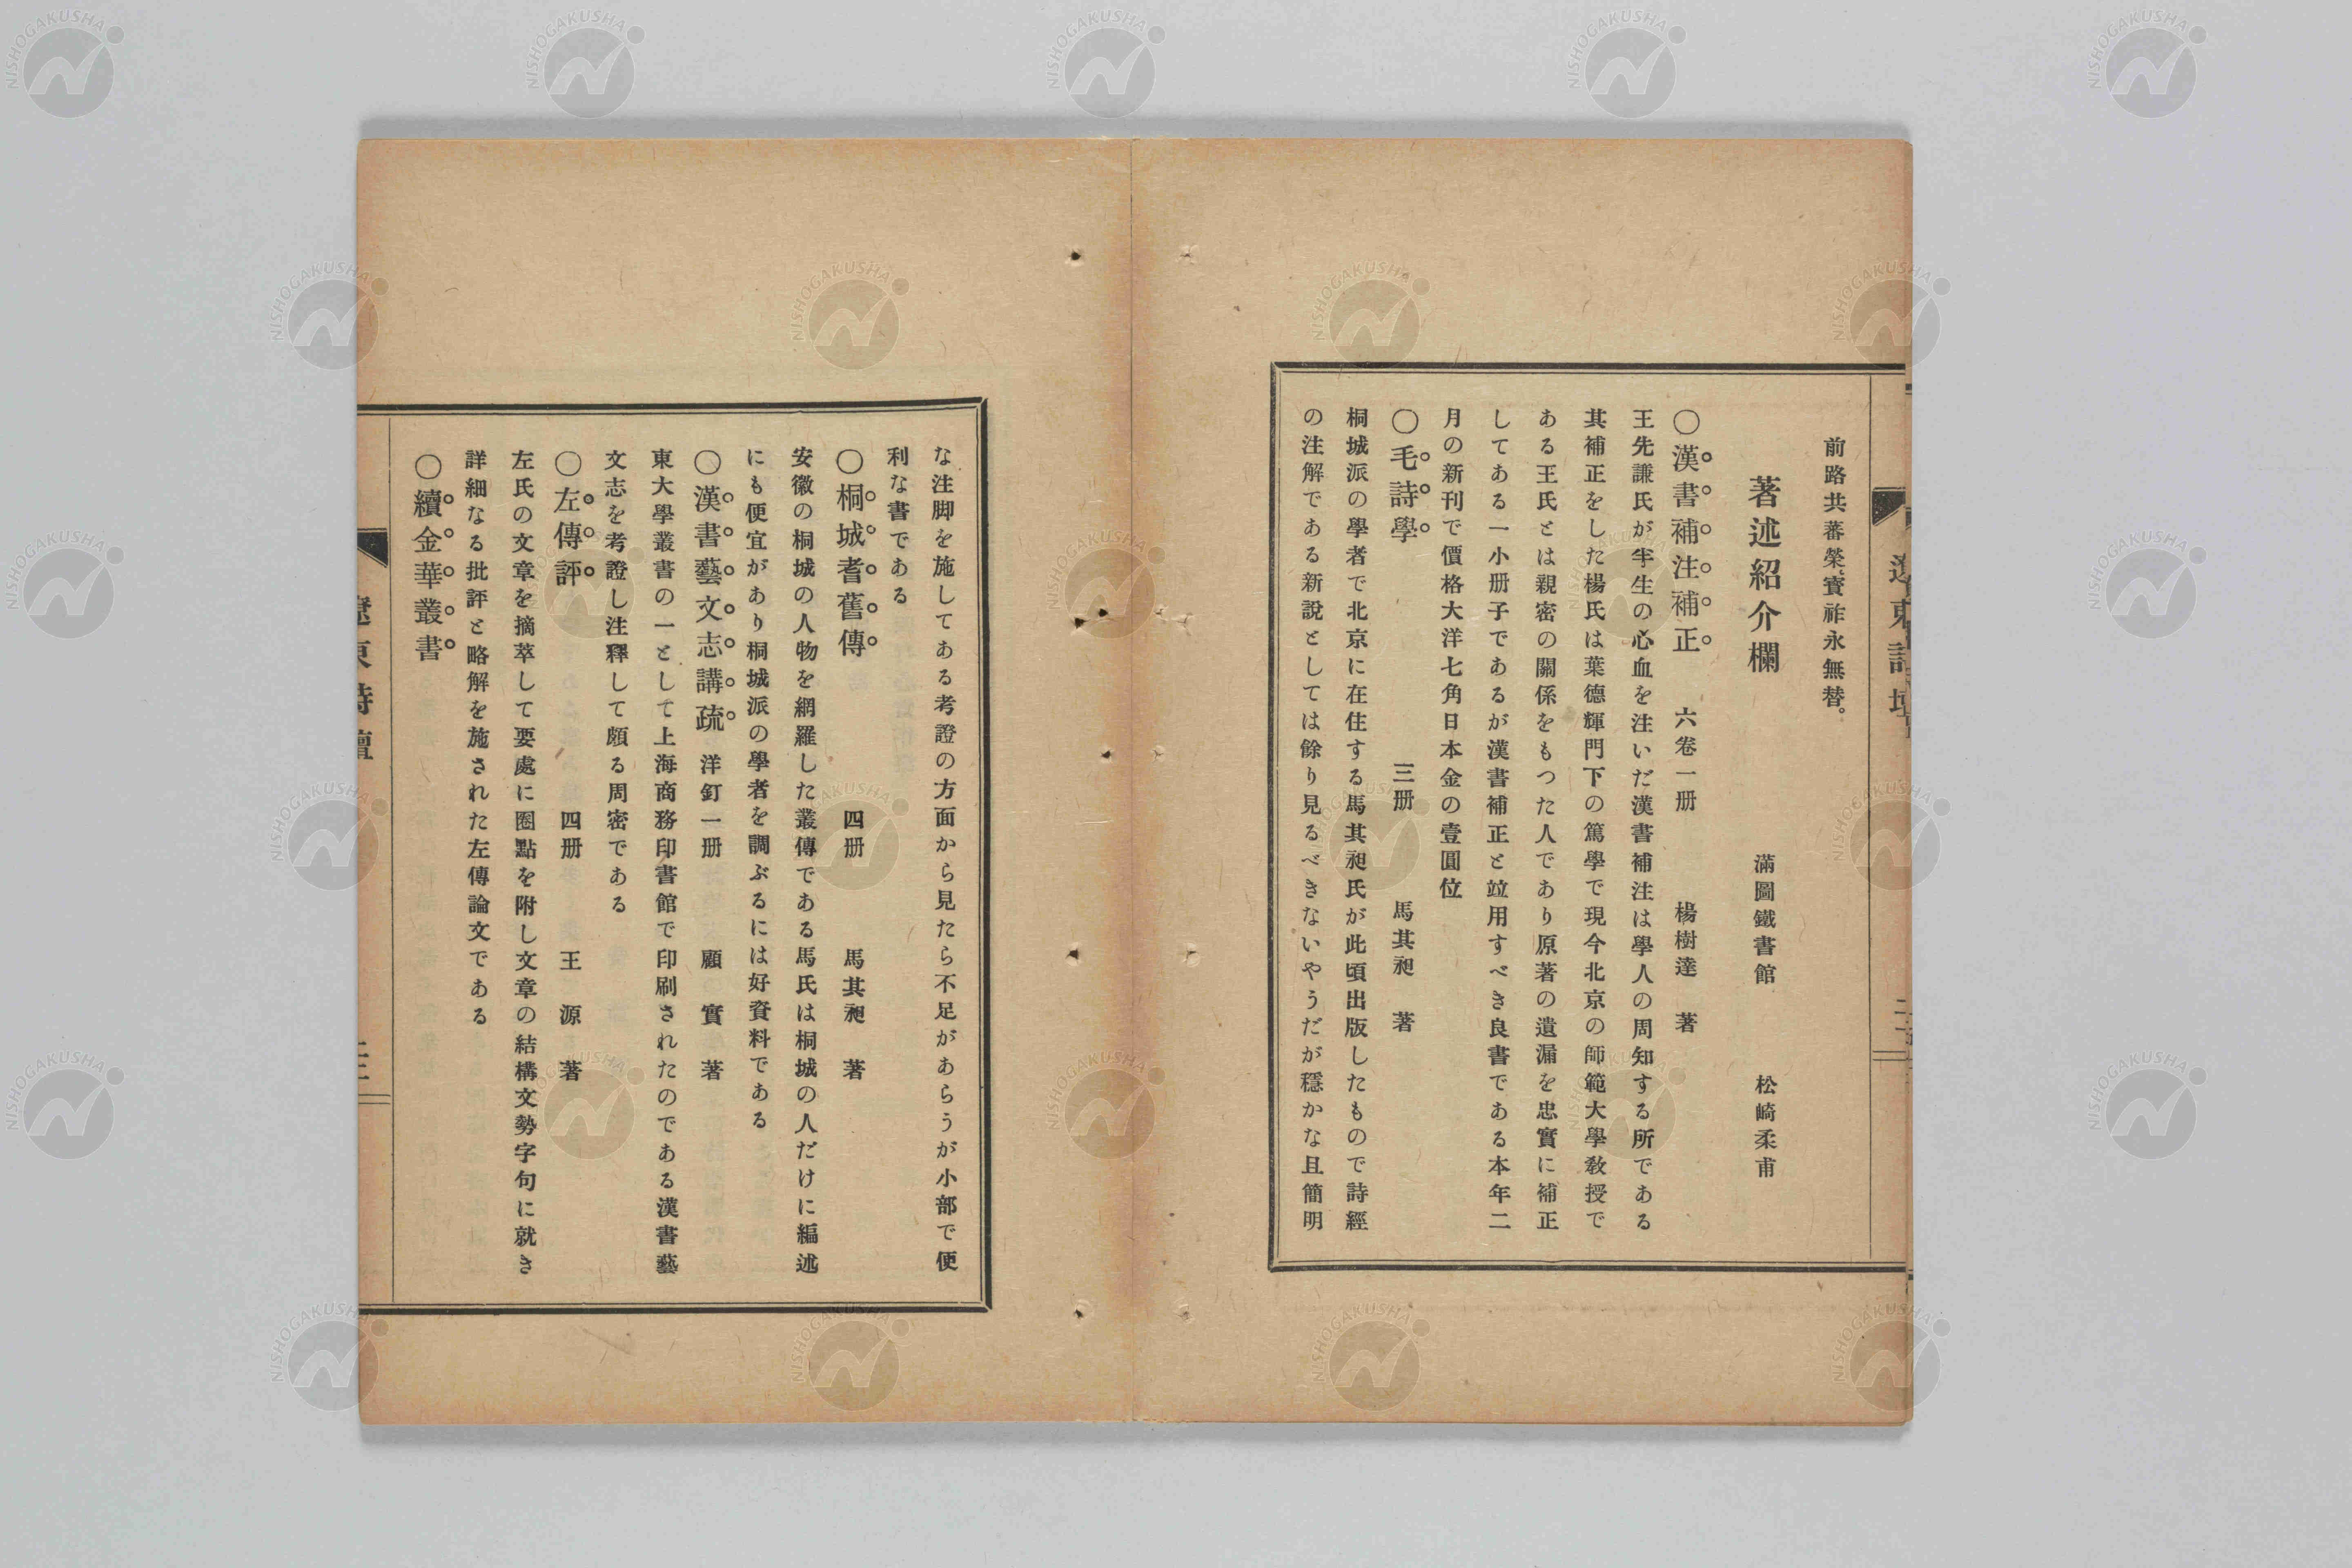 前路共蕃榮寳祚永無替。
著述紹介欄　滿圖鐵書館　松崎柔甫
〇漢書補注補正　六卷一册　楊樹達　著
王先謙氏が半生の心血を注いだ漢書補注は學人の周知する所である
其補正をした楊氏は葉德輝門下の篤學で現今北京の師範大學敎授で
ある王氏とは親密の關係をもつた人であり原著の遺漏を忠實に補正
してある一小册子であるが漢書補正と竝用すべき良書である本年二
月の新刊で價格大洋七角日本金の壹圓位
〇毛詩學　三册　馬其昶　著
桐城派の學者で北京に在住する馬其昶氏が此頃出版したもので詩經
の注解である新說としては餘り見るべきないやうだが穩かな且簡明
な注脚を施してある考證の方面から見たら不足があらうが小部で便
利な書である
〇桐城耆舊傳　四册　馬其昶　著
安徽の桐城の人物を網羅した叢傳である馬氏は桐城の人だけに編述
にも便宜があり桐城派の學者を調ぶるには好資料である
〇漢書藝文志講疏　洋釘一册　顧實　著
東大學叢書の一として上海商務印書館で印刷されたのである漢書藝
文志を考證し注釋して頗る周密である
〇左傳評　四册　王源　著
左氏の文章を摘萃して要處に圈點を附し文章の結構文勢字句に就き
詳細なる批評と略解を施された左傳論文である
〇續金華叢書
遼東詩壇
NISHOGAKUSHA